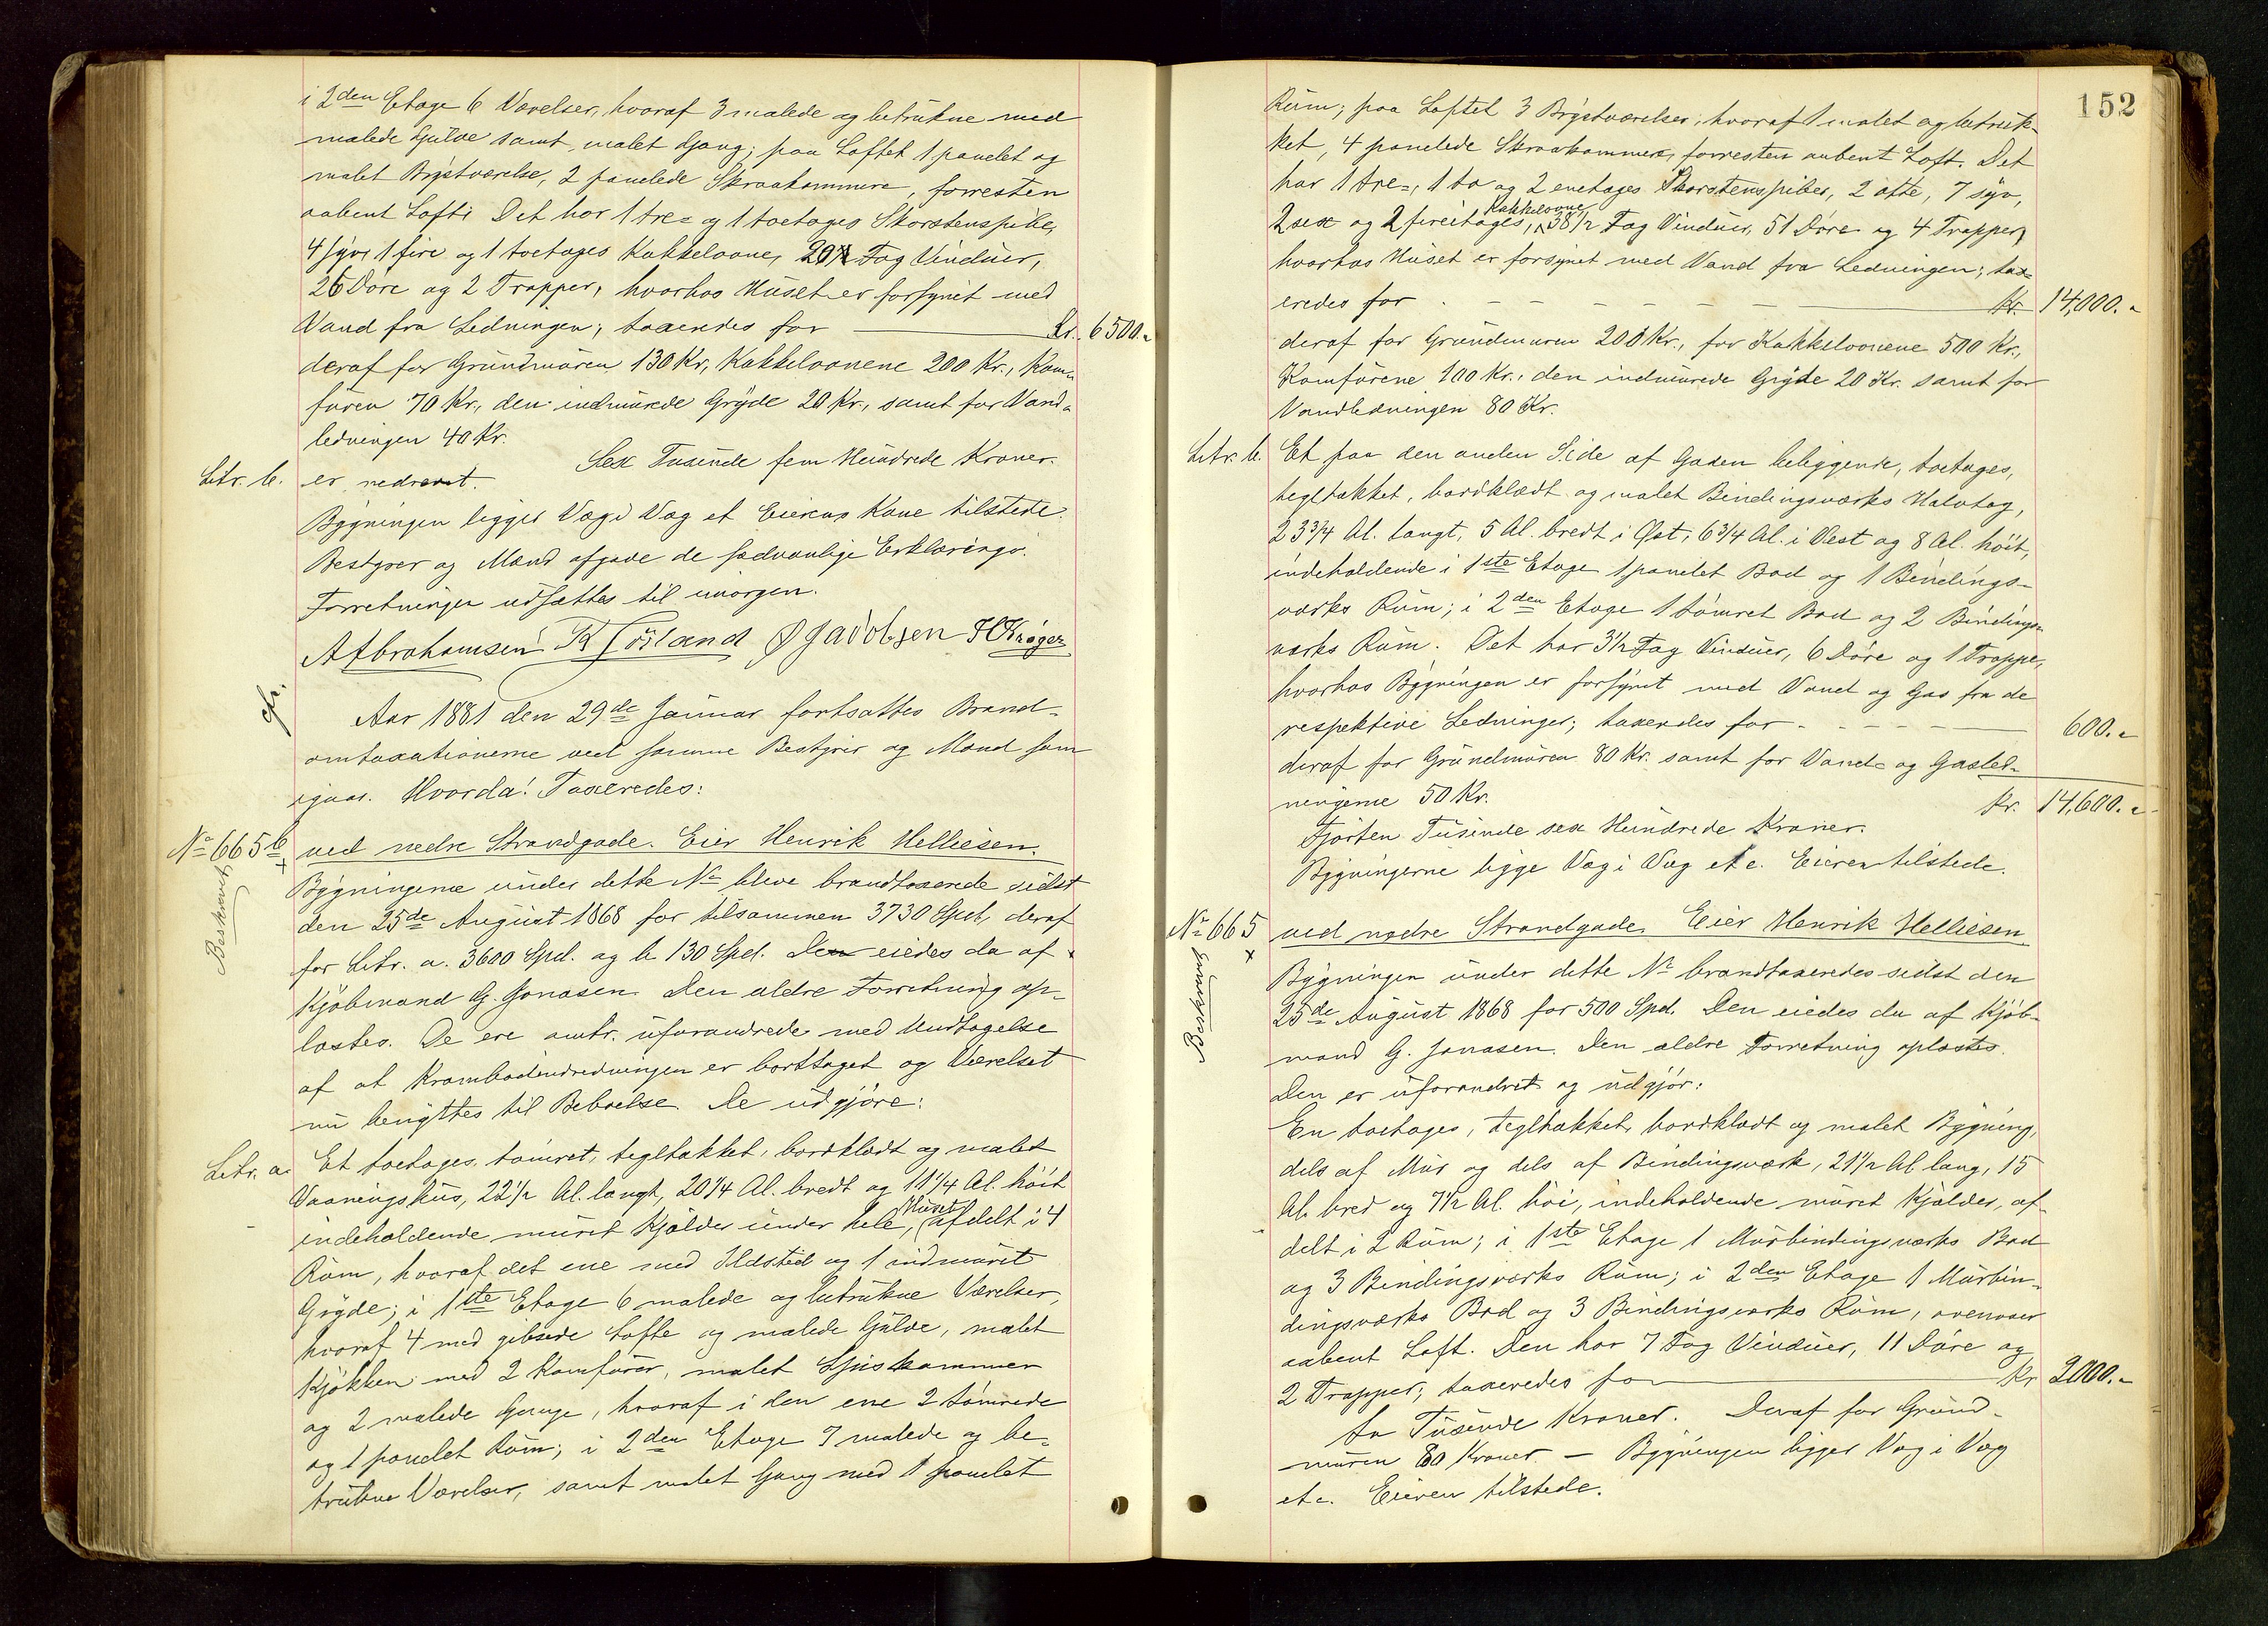 i 2den Etage 6 Værelser, hvoraf 3 malede og betrukne med
malede Gulve samt malet Gang; paa Loftet 1 panelet og
malet Brystværelse, 2 panelede Skraakammere, forresten
aabent Loft. Det har 1 tre- og 1 toetages Skorstenspibe,
4 syv, 1 fire og 1 toetages Kakkelovne, 20 Fag Vinduer,
26 Döre og 2 Trapper, hvorhos Huset er forsynet med
Vand fra Ledningen; taxeredes for Kr. 6500.-
deraf for Grundmuren 130 Kr, Kakkelovnene 200 Kr., Kom-
furen 70 Kr., den indmurede Gryde 20 Kr., samt for Vand-
ledningen 40 Kr.
Sex Tusinde fem Hundrede Kroner.
Litr. b. er nedrevet.
Bygningen ligger Væg i Væg et Eierens Kone tilstede.
Bestyrer og Mænd afgave de sædvanlige Erklæringer.
Forretningen udsættes til imorgen.
A Abrahamsen K Törland O Jacobsen H Kröger
cfr.
Aar 1881 den 29de Januar fortsattes Brand-
omtaxationerne ved samme Bestyrer og Mænd som
igaar. Hvorda! Taxeredes:
No 665b ved nedre Strandgade. Eier Henrik Helliesen.
Beskrevet
Bygningerne under dette No bleve brandtaxerede sidst
den 25de August 1868 for tilsammen 3730 Spd, deraf
for Litr. a. 3600 Spd. og b 130 Spd. Den eiedes da af
Kjöbmand G. Jonasen. Den ældre Forretning op-
læstes. De ere omtr. uforandrede med Undtagelse
af at Krambodindredningen er borttaget og Værelset
nu benyttes til Beboelse. De udgjöre:
Litr. a. Et toetages, tömret, tegltækket, bordklædt og malet
Vaaningshus, 22 1/2 Al. langt, 20 1/4 Al. bredt og 11 1/4 Al. höit
indeholdende muret Kjælder under hele Huset, afdelt i 4
Rum, hvoraf det ene med Ildsted og 1 indmuret
Gryde; i 1ste Etage 6 malede og betrukne Værelser,
hvoraf 4 med gibsede Lofte og malede Gulve, malet
Kjökken med 2 Komfurer, malet Spiskammer
og 2 malede Gange, hvoraf i den ene 2 tömrede
og 1 panelet Rum; i 2den Etage 7 malede og be-
trukne Værelser, samt malet Gang med 1 panelet
152
Rum; paa Loftet 3 Brystværelser, hvoraf 1 malet og betruk-
ket, 4 panelede Skraakammere, forresten aabent Loft. Det
har 1 tre-, 1 to og 2 enetages Skorstenspiber, 2 otte, 7 syv,
2 sex og 2 fireetages Kakkelovne, 38 1/2 Fag Vinduer, 51 Döre og 4 Trapper,
hvorhos Huset er forsynet med Vand fra Ledningen; tax-
eredes for Kr. 14,000.-
deraf for Grundmuren 200 Kr., for Kakkelovnene 500 Kr.,
Komfurene 100 Kr., den indmurede Gryde 20 Kr. samt for
Vandledningen 80 Kr.
Litr. b. Et paa den anden Side af Gaden beliggende, toetages,
tegltækket, bordklædt og malet Bindingsværks Halvtag,
23 3/4 Al. langt, 5 Al. bredt i Öst, 6 3/4 Al. i Vest og 8 Al. höit,
indeholdende i 1ste Etage 1 panelet Bod og 1 Bindings-
værks Rum; i 2den Etage 1 tömret Bod og 2 Bindings-
værks Rum. Det har 3 1/2 Fag Vinduer, 6 Döre og 1 Trappe,
hvorhos Bygningen er forsynet med Vand og Gas fra de
respektive Ledninger; taxeredes for 600.-
deraf for Grundmuren 80 Kr. samt for Vand- og Gasled-
ningerne 50 Kr. Kr. 14,600.-
Fjorten Tusinde sex Hundrede Kroner.
Bygningerne ligge Væg i Væg etc. Eieren tilstede.
No 665 ved nedre Strandgade. Eier Henrik Helliesen.
Beskrevet
Bygningen under dette No brandtaxeredes sidst den
25de August 1868 for 500 Spd. Den eiedes da af Kjöb-
mand G. Jonasen. Den ældre Forretning oplæstes.
Den er uforandret og udgjör:
En toetages, tegltækket, bordklædt og malet Bygning,
dels af Mur og dels af Bindingsværk, 21 1/2 Al lang, 15
Al. bred og 7 1/2 Al. höi, indeholdende muret Kjælder, af-
delt i 2 Rum; i 1ste Etage 1 Murbindingsværks Bod
og 3 Bindingsværks Rum; i 2den Etage 1 Murbin-
dingsværks Bod og 3 Bindingsværks Rum, ovenover
aabent Loft. Den har 7 Fag Vinduer, 11 Döre og
2 Trapper; taxeredes for Kr 2000.-
To Tusinde Kroner. Deraf for Grund-
muren 80 Kroner. — Bygningen ligger Væg i Væg
etc. Eieren tilstede.